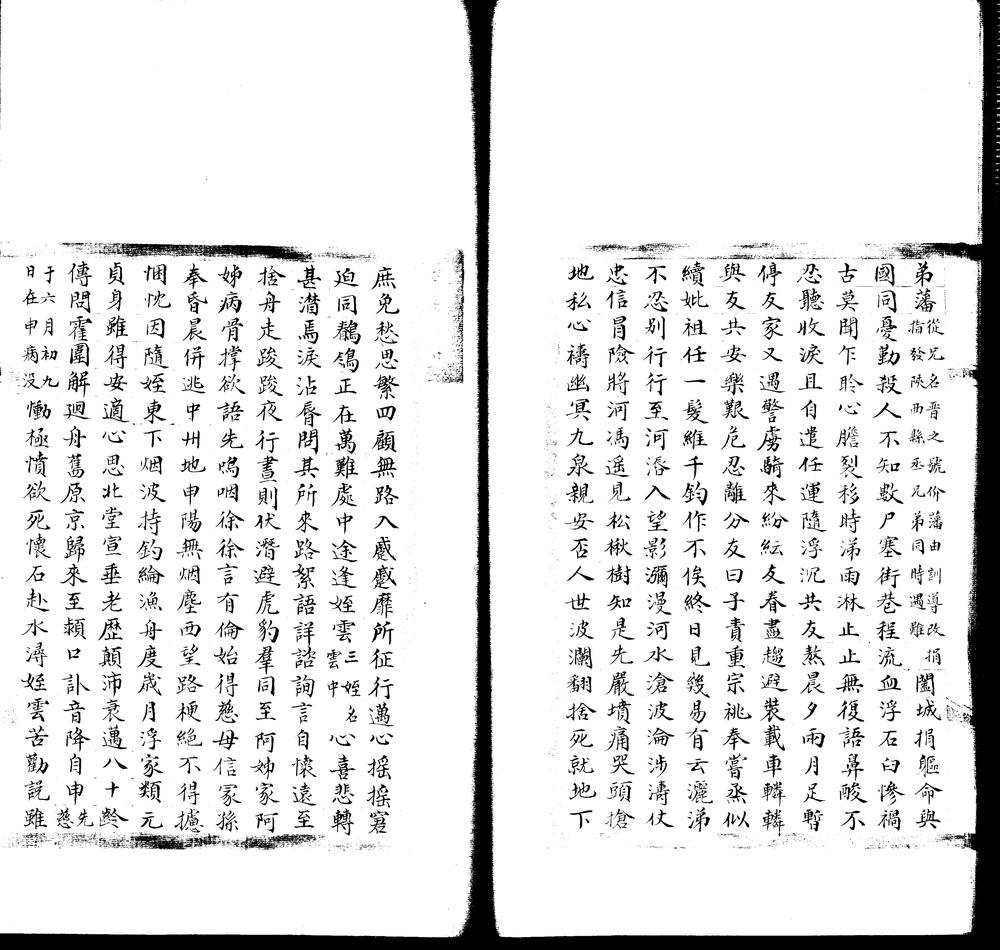 弟藩從兄名晋之號价藩由訓導改捐
指發陝西縣丞兄弟同時遇難闔城捐軀命與
國同憂勤殺人不知數尸塞街巷程流血浮石臼慘禍
古莫聞乍聆心膽裂移時涕雨淋止止無復語鼻酸不
忍聽收淚且自遣任運隨浮沉共友熬晨夕兩月足暫
停友家又遇警虜騎來紛紜友眷盡趨避裝載車轔轔
與友共安樂艱危忍離分友曰子責重宗祧奉嘗烝似
續妣祖任一髮維千鈞作不俟終日見幾易有云灑涕
不忍別行行至河漘入望影瀰漫河水滄波淪涉濤仗
忠信冒險將河馮遥見松楸樹知是先嚴墳痛哭頭搶
地私心禱幽冥九泉親安否人世波瀾翻捨死就地下
庶免愁思縈四顧無路入蹙蹙靡所征行邁心摇摇窘
迫同鶺鴒正在萬難處中途逢姪雲三姪名
雲中心喜悲轉
甚潸焉淚沾唇問其所來路絮語詳諮詢言自懷遠至
捨舟走踆踆夜行晝則伏潛避虎豹羣同至阿姊家阿
姊病骨撑欲語先嗚咽徐徐言有倫始得慈母信冢孫
奉昏晨併逃中州地申陽無烟塵西望路梗絶不得攄
悃忱因隨姪東下烟波持釣綸漁舟度歲月浮家類元
貞身雖得安適心思北堂宣垂老歷顛沛衰邁八十齡
傳問霍圍解迴舟舊原京歸來至頼口訃音降自申先慈
于六月初九
日在申病没慟極憤欲死懷石赴水潯姪雲苦勸說雖